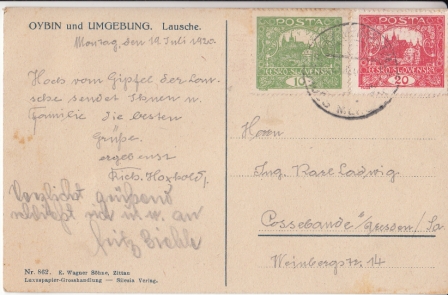 OYBIN und UMGEBUNG. Lausche.
Montag, den 19 Juli 1920.
Hoch vom Gipfel der Lau-
sche sendet Ihnen u.
Familie die besten
Grüße
ergebenst
Rich.
Herzlichst grüßend
an
Fritz
Nr. 862. E. Wagner Söhne, Zittau
Luxuspapier-Grosshandlung — Silesia Verlag.
POSTA
ČESKO-SLOVENSKÁ
10
POSTA
ČESKO-SLOVENSKÁ
20
Herrn
Ing. Karl Ladwig
Cossebaude Sa.
Weinbergstr. 14